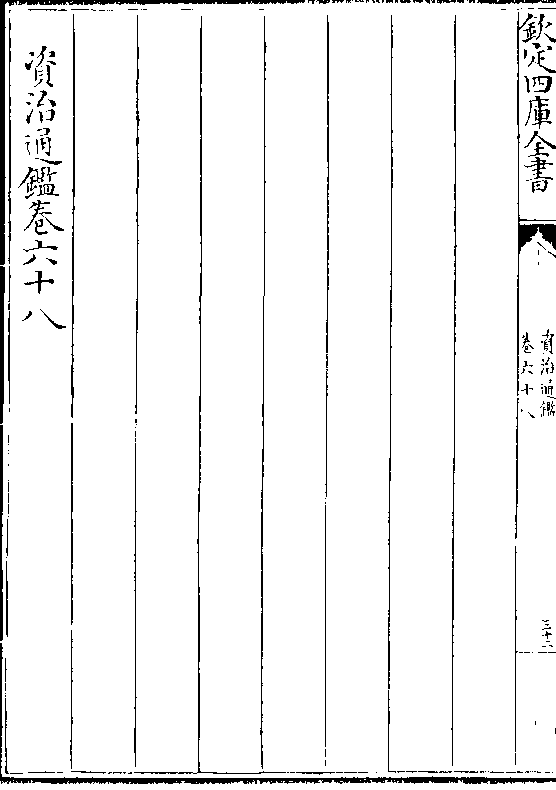 欽定四庫全書
資治通鑑
卷六十八
三十二
資治通鑑卷六十八